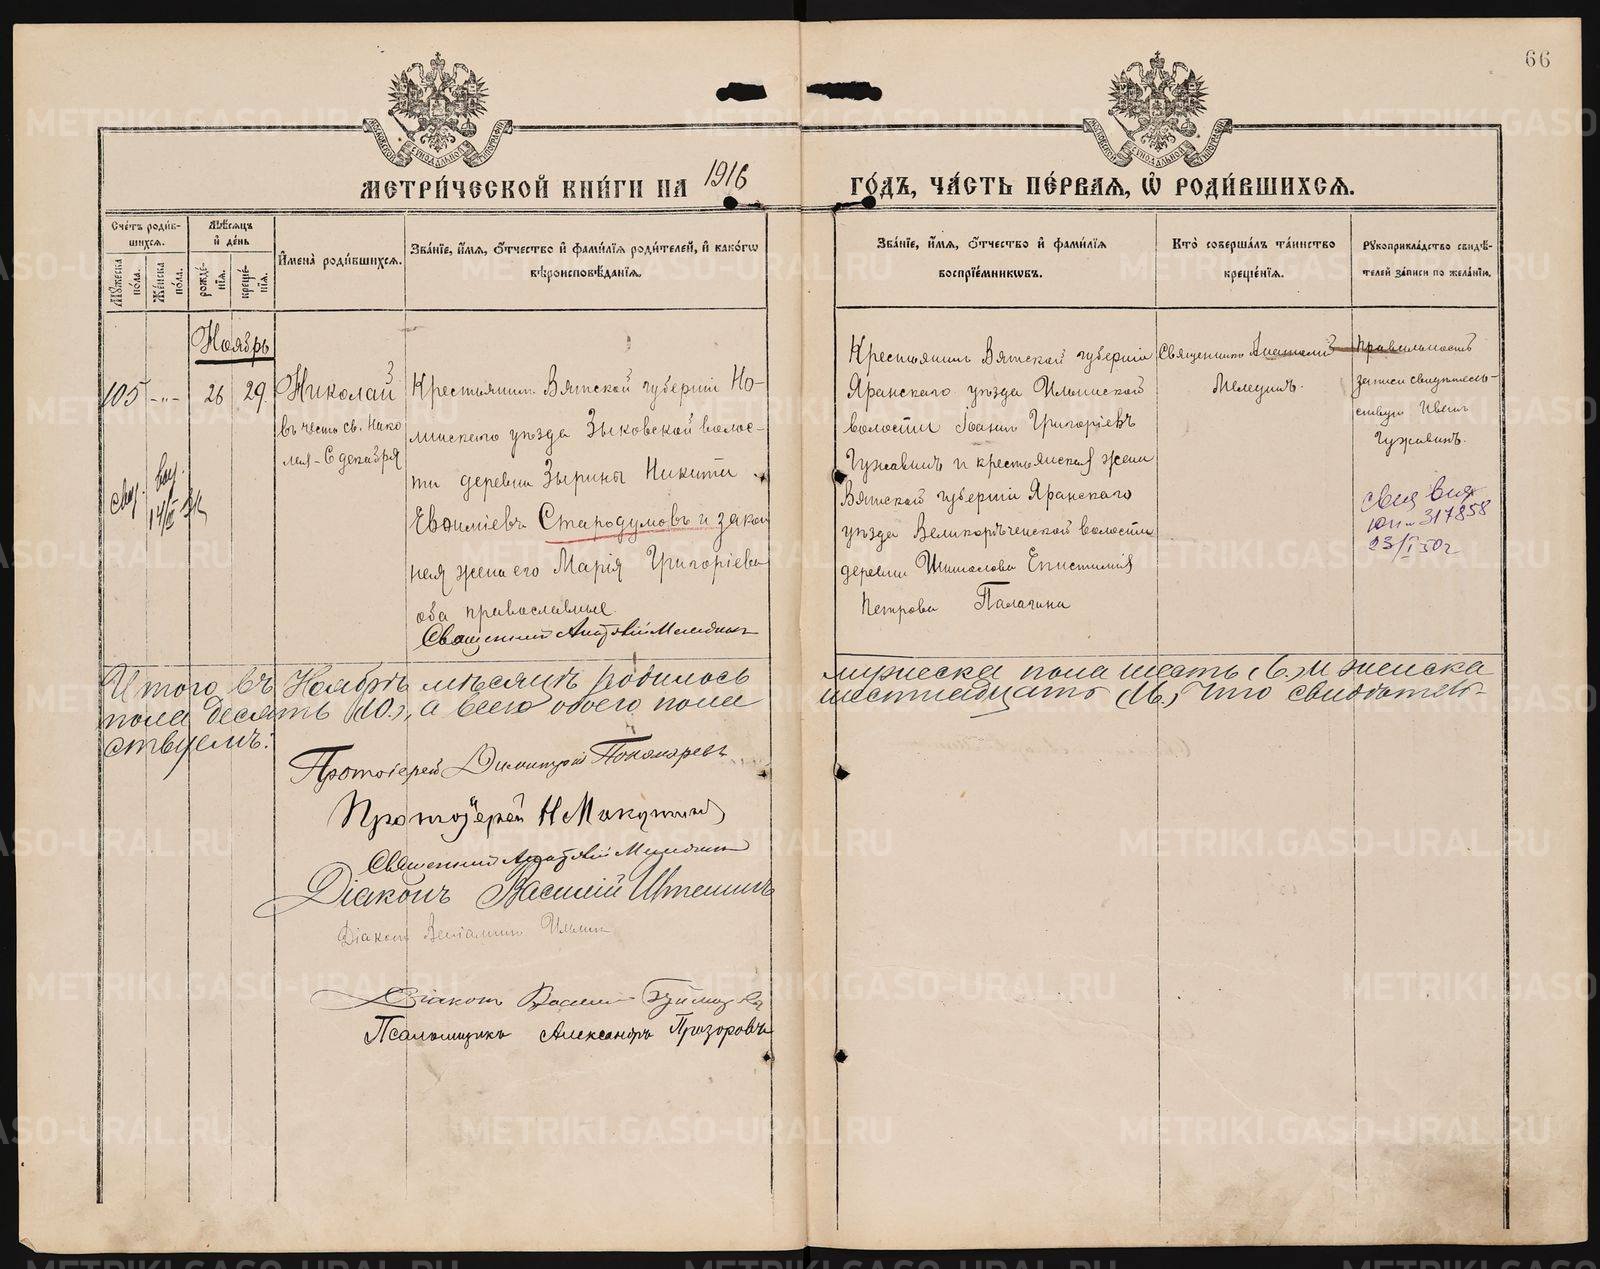 66
МЕТРИ́ЧЕСКОЙ КНИ́ГИ НА 1916 ГО́ДЪ, ЧА́СТЬ ПЕ́РВАѦ, Ѡ҆ РОДИ́ВШИХСѦ.
Сче́тъ роди́в-
шихсѧ.
Мꙋ́жеска
по́ла.
Же́нска
по́ла.
Мѣ́сѧцъ
и҆ де́нь
рожде́-
нїѧ.
креще́-
нїѧ.
И҆мена̀ роди́вшихсѧ.
Зва́нїе, и҆́мѧ, ѻ҆́тчество и҆ фами́лїѧ роди́телей, и҆ како́гѡ
вѣроисповѣ́данїѧ.
Зва́нїе, и҆́мѧ, ѻ҆́тчество и҆ фами́лїѧ
воспрїе́мникѡвъ.
Кто̀ соверша́лъ та́инство
креще́нїѧ.
Рꙋкоприкла́дство свидѣ́-
телей за́писи по жела́нїю.
Ноябрь
105 -„- 26 29
Николай
въ честь св. Нико
лая – 6 декабря
Крестьянинъ Вятской губерніи Но-
линскаго уѣзда Зыковской волос-
ти деревни Зырины Никита
Евѳиміевъ Стародумовъ и закон
ная жена его Марія Григоріева
оба православные.
Священникъ Анатолій Мелединъ
Крестьянинъ Вятской губерніи
Яранскаго уѣзда Ильинской
волости Іоаннъ Григоріевъ
Гужавинъ и крестьянская жена
Вятской губерніи Яранскаго
уѣзда Великорѣченской волости
деревни Шишалова Епистимія
Петрова Палагина
Священникъ Анатолій
Мелединъ.
Правильность
записи свидѣтель-
ствую Иванъ
Гужавинъ.
317858
23/I 50 г
Итого въ Ноябрѣ мѣсяцѣ родилось мужеска пола шесть (6.) и женска
пола десять (10.), а всего обоего пола шестнадцать (16.) Что свидѣтель-
ствуемъ:
Протоіерей Димитрій Пономаревъ
Протоіерей Н Макушинъ
Священникъ Анатолій Мелединъ
Діаконъ Василій Итешинъ
Діаконъ Веніаминъ Ильинъ
Діаконъ Василій
Псаломщикъ Александръ Призоровъ
METRIKI.GASO-URAL.RU